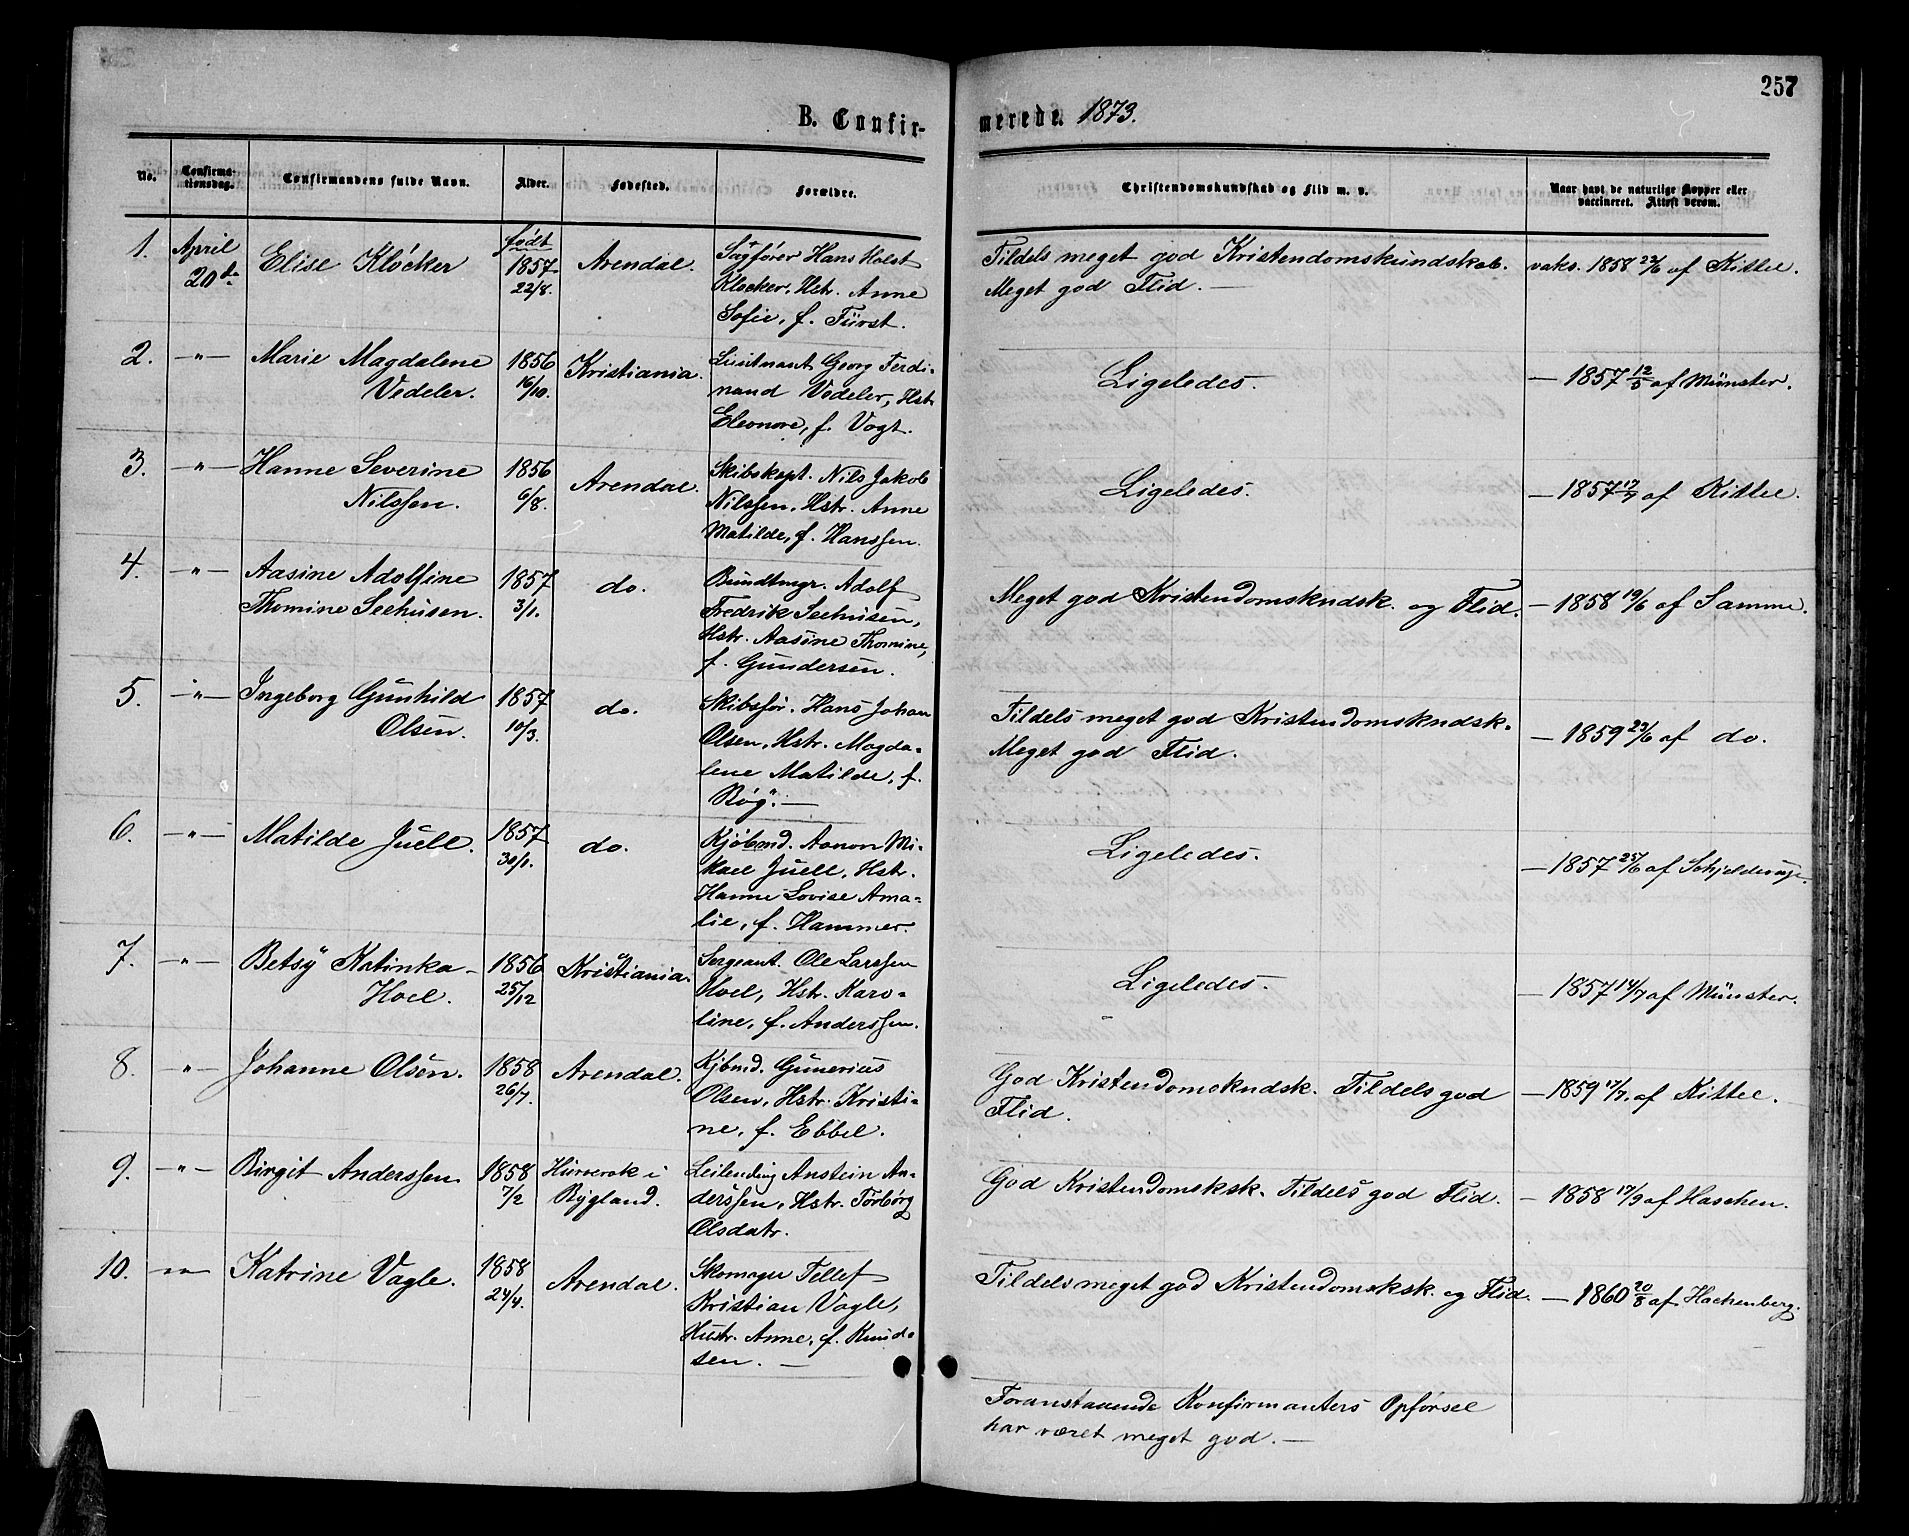 257
B. Confir-
merede. 1873.
No.
Confirma-
tionsdag.
Confirmandens fulde Navn.
Alder.
Fødested.
Forældre.
Christendomskundskab og Flid m. v.
Naar havt de naturlige Kopper eller
vaccineret. Attest derom.
1. April 20de Elise Klöcker født 1857 22/8. Arendal.
Sagfører Hans Holst
Klöcker, Hstr. Anne
Sofie, f. Fürst.
Tildels meget god Kristendomskundskab.
Meget god Flid. —
vaks. 1858 22/6 af Kittel.
2. —"— Marie Magdalene
Vedeler. 1856 16/10. Kristiania.
Lieutnant Georg Ferdi-
nand Vedeler, Hstr
Eleonore, f. Vogt.
Ligeledes.
— 1857 12/5 af Münster.
3. —"— Hanne Severine
Nilssen. 1856 6/8. Arendal.
Skibskapt. Nils Jakob
Nilssen, Hstr. Anne
Matilde, f. Hanssen.
Ligeledes.
— 1857 17/7 af Kittel.
4. —"— Aasine Adolfine
Thomine Seehusen. 1857 3/1. do.
Bundtmgr. Adolf
Fredrik Seehusen,
Hstr. Aasine Thomine,
f. Gundersen.
Meget god Kristendomskndsk. og Flid.
— 1858 19/6 af Samme.
5. —"— Ingeborg Gunhild
Olsen. 1857 10/3. do.
Skibsfør. Hans Johan
Olsen, Hstr. Magda-
lene Matilde, f.
Røg. —
Tildels meget god Kristendomskndsk.
Meget god Flid.
— 1859 23/6 af do.
6. —"— Matilde Juell. 1857 30/1. do.
Kjøbmd. Aanon Mi-
kael Juell, Hstr.
Hanne Lovise Ama-
lie, f. Hammer.
Ligeledes.
— 1857 25/6 af Schjelderup.
7. —"— Betsy Katinka
Hoel. 1856 25/12 Kristiania.
Sergeant. Ole Larssen
Hoel, Hstr. Karo-
line, f. Anderssen.
Ligeledes.
— 1857 14/7 af Münster.
8. —"— Johanne Olsen. 1858 26/7. Arendal.
Kjbmd. Gunerius
Olsen, Hstr. Kristi-
ne, f. Ebbel.
God Kristendomskndsk. Tildels god
Flid.
— 1859 17/7. af Kittel.
9. —"— Birgit Anderssen. 1858 7/2 i
Bygland.
Leilending Anstein An-
derssen, Hstr. Torborg
Olsdatr.
God Kristendomsksk. Tildels god Flid.
— 1858 17/9 af Haschen.
10. —"— Katrine Vagle. 1858 24/4. Arendal.
Skomager Tellef
Kristian Vagle,
Hustr. Anne, f. Knud-
sen. —
Tildels meget god Kristendomsksk. og Flid.
— 1860 20/8 af Hachenberg.
Foranstaaende Konfirmanters Opførsel
har været meget god. —